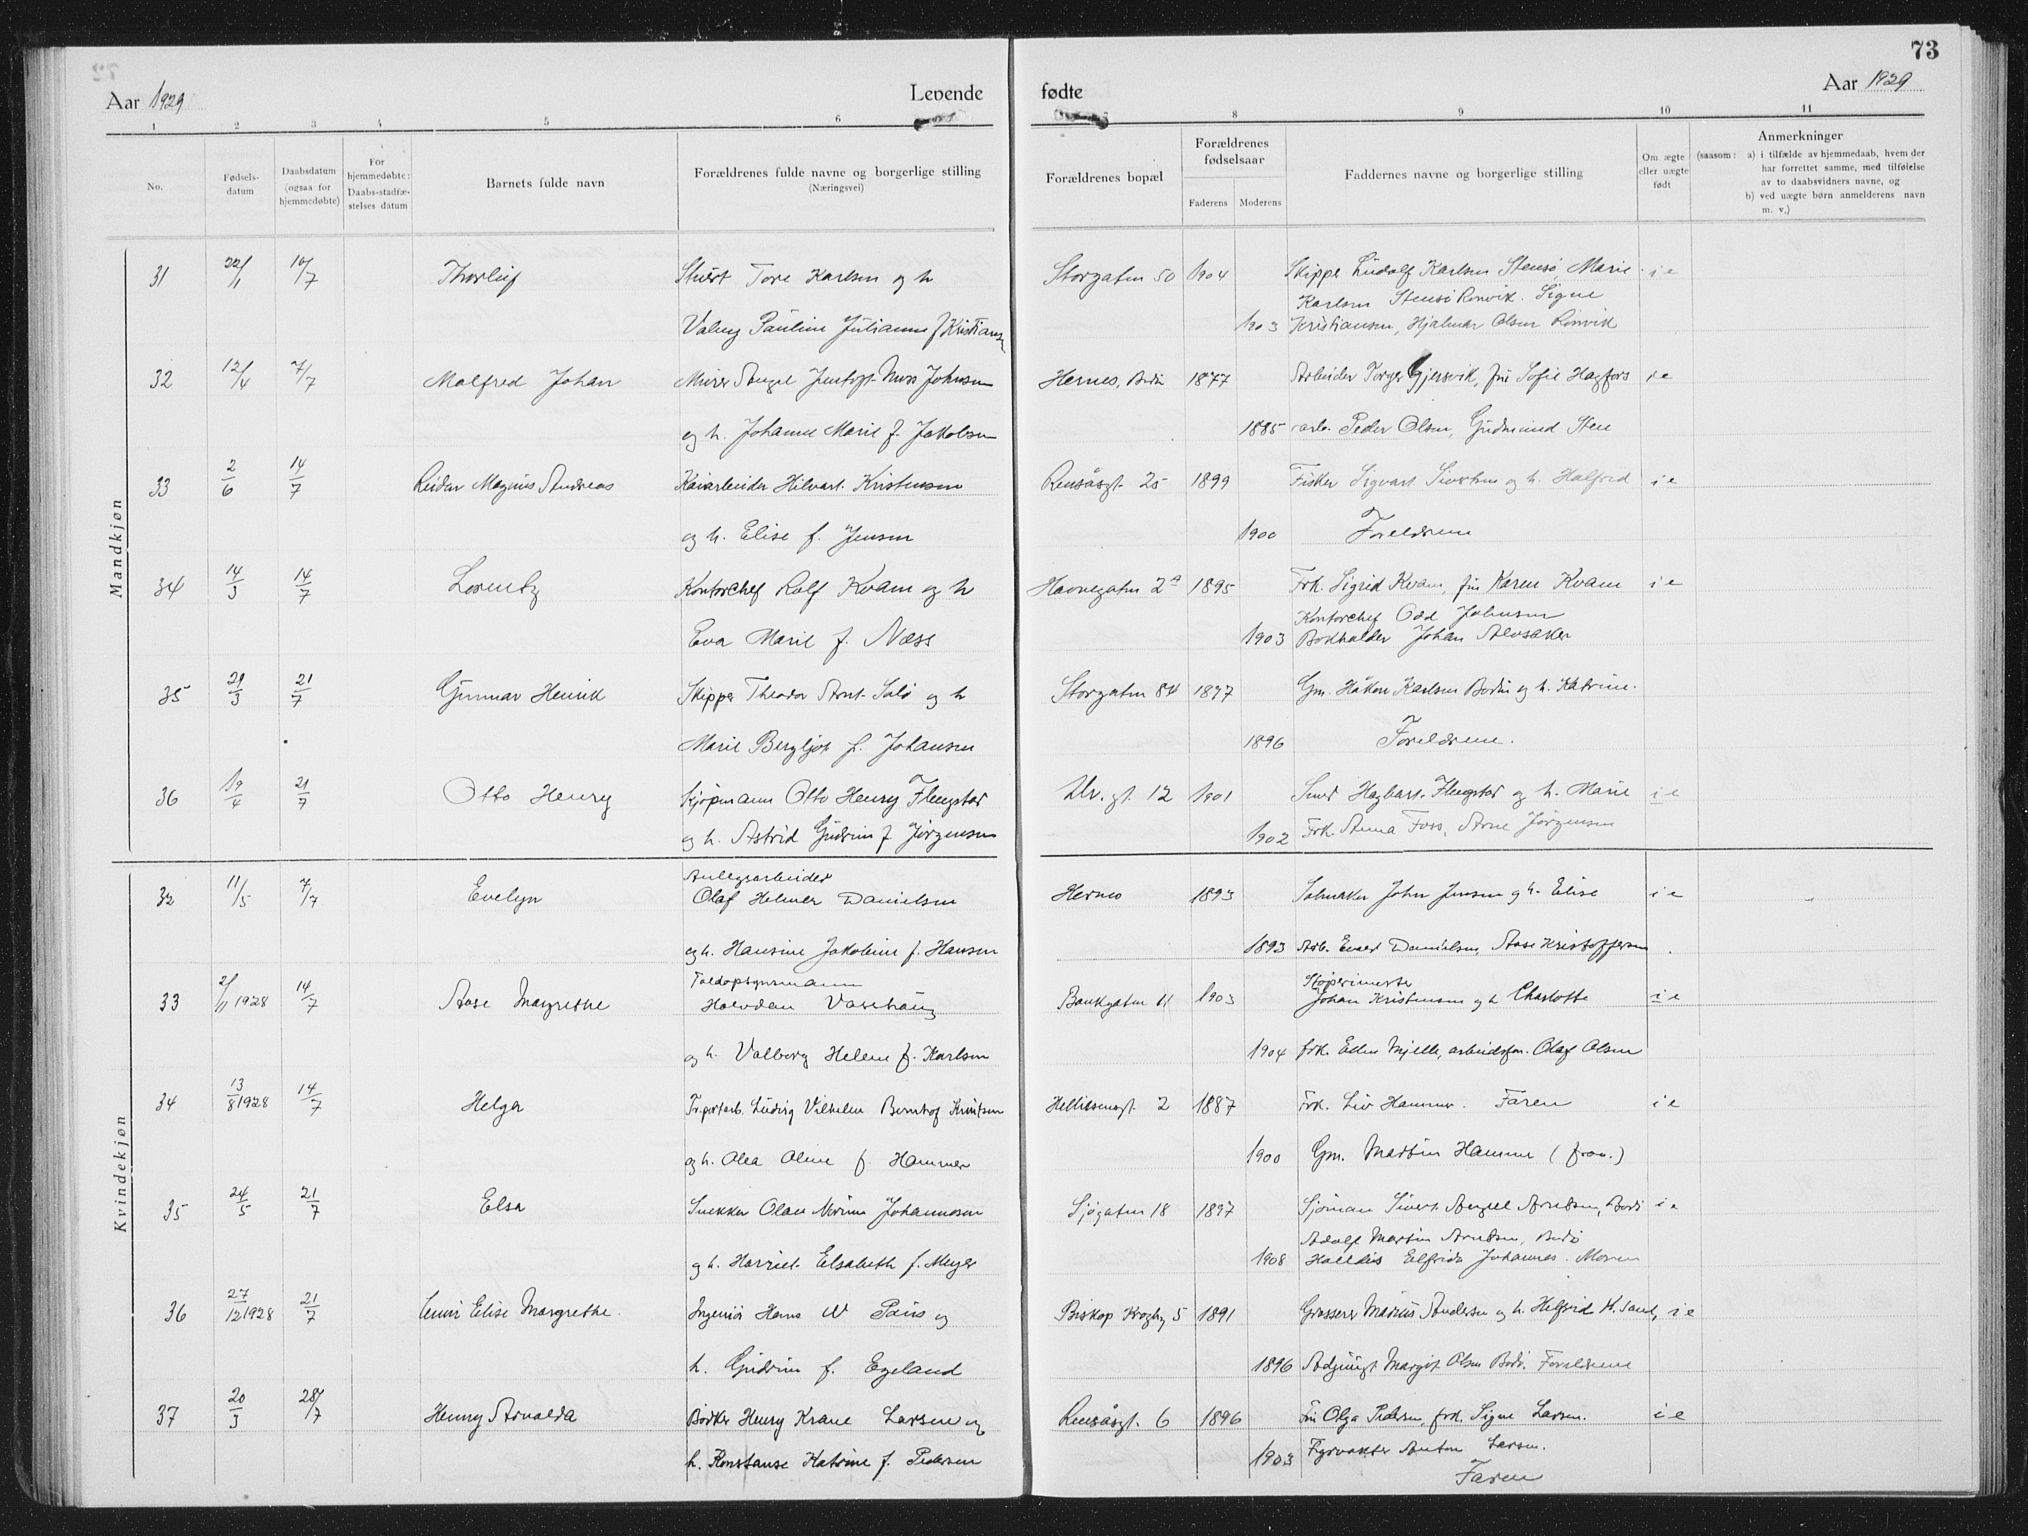 73
Aar 1929
Levende
fødte
Aar 1929
1 2 3 4 5 6
8 9 10 11
No.
Fødsels-
datum
Daabsdatum
(ogsaa for
hjemmedøbte)
For
hjemmedøbte:
Daabs-stadfæ-
stelses datum
Barnets fulde navn
Forældrenes fulde navne og borgerlige stilling
(Næringsvei)
Forældrenes bopæl
Forældrenes
fødselsaar
Faderens Moderens
Faddernes navne og borgerlige stilling
Om ægte
eller uægte
født
Anmerkninger
(saasom: a) i tilfælde av hjemmedaab, hvem der
har forrettet samme, med tilføielse
av to daabsvidners navne, og
b) ved uægte børn anmelderens navn
m. v.)
Mandkjøn
31 22/1 14/7 Thorleif Tore Karlsen og h Storgaten 50 1904 Skipper Ludolf Karlsen Stensø Marie i e
Karlsen Rønvik. Signe
Valborg Pauline Julianne f Kristiansen 1903 Kristiansen, Hjalmar Olsen Rønvik
32 12/4 7/7 Malfred Johan Murer Angel Jentoft Johnsen Hernes, Bodin 1877 Arbeider Torger Gjersvik, fru Sofie Hagfors i e
og h. Johanne Marie f. Jakobsen 1885 arb. Peder Olsen, Gudmund Sten
33 2/6 14/7 Reidar Magnus Andreas Kaiarbeider Hilvart Kristensen Rensåsgt. 25 1899 Fisker Sigvart Sivertsen og h. Halfrid i e
og h. Elise f. Jensen 1900 Foreldrene
34 14/3 14/7 Lorentz Kontorchef Rolf Kvam og h Havnegaten 2a 1895 Frk. Sigrid Kvam, fru Karen Kvam i e
Kontorchef Odd Johnsen
Eva Marie f. Næss 1903 Bokholder Johan Alvsaker
35 29/3 21/7 Gunnar Henrik Skipper Theodor Arnt Solø og h Storgaten 84 1897 Gm. Håkon Karlsen Bodin og h. Katrine.
Marie Bergljot f. Johansen 1896 Foreldrene.
36 19/4 21/7 Otto Henry Kjøpmann Otto Henry Flengstad gt. 12 1901 Smed Hagbart Flengstad og h. Marie i e
og h. Astrid Gudrun f. Jørgensen 1902 Frk. Anna Foss, Arne Jørgensen
Kvindekjøn
32 11/5 7/7 Evelyn Anlegsarbeider
Olaf Helmer Danielsen Hernes 1893 Salmaker John Jensen og h. Elise i e
og h. Hansine Jakobine f. Hansen 1893 Arb. Danielsen, Aase Kristoffersen
33 2/11 1928 14/7 Aase Margrethe Toldopsynsmann
Halvdan Vasshaug Bankgaten 11 1903 Støperimester
Johan Kristensen og h Charlotte i e
og h. Valborg Helene f. Karlsen 1904 frk. Ellen Mjelle, arbeidsfm. Olaf Olsen
34 13/8 1928 14/7 Helga Ludvig Vilhelm Knutsen Hellitsensgt. 2 1887 Frk. Liv Hammer. Faren i e
og h. Olea Oline f. Hammer 1900 Gm. Martin Hammer (frav.)
35 24/5 21/7 Elsa Snekker Olav Johannesen Sjøgaten 18 1897 Sjømann Sivert Arntsen, Bodø i e
Adolf Martin Arntsen, Bodø
og h. Harriet Elsabeth f. Meyer 1908 Halldis Elfrida Johannes. Moren
36 27/12 1928 21/7 Elise Margrethe. Ingeniør Hans W Paus og Biskop Kroghg 5 1891 Grosserer Marius Andersen og h. Helfrid i e
h. Gudrun f. Egeland 1896 Adjunkt Margit Olsen Bodø. Foreldrene
37 20/3 28/7 Henny Arnalda Bødker Henry Krane Larsen og Rensåsgt. 6 1896 Fru Olga Pedersen, frk. Signe Larsen. i e
h. Konstanse Katrine f. Pedersen 1903 Fyrvokter Anton Larsen.
Faren